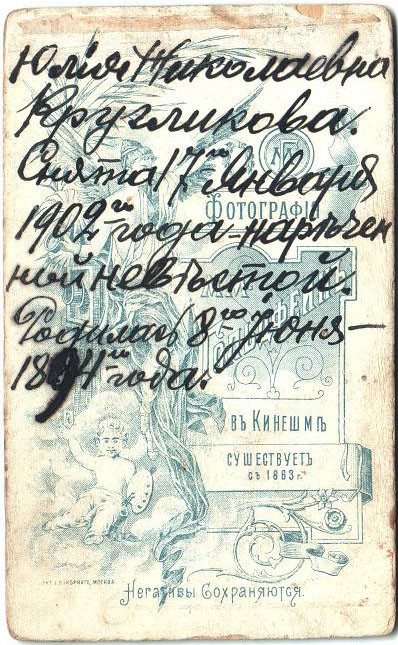 Юлія Николаевна
Кругликова.
Снята 17го Января
1902го года нарѣчен
ной невѣстой.
Родилась 8го Іюня
188 года.
ФОТОГРАФІЯ
ВЪ КИНЕШМѢ
СУЩЕСТВУЕТЪ
СЪ 1863 г.
Негативы Сохраняются.